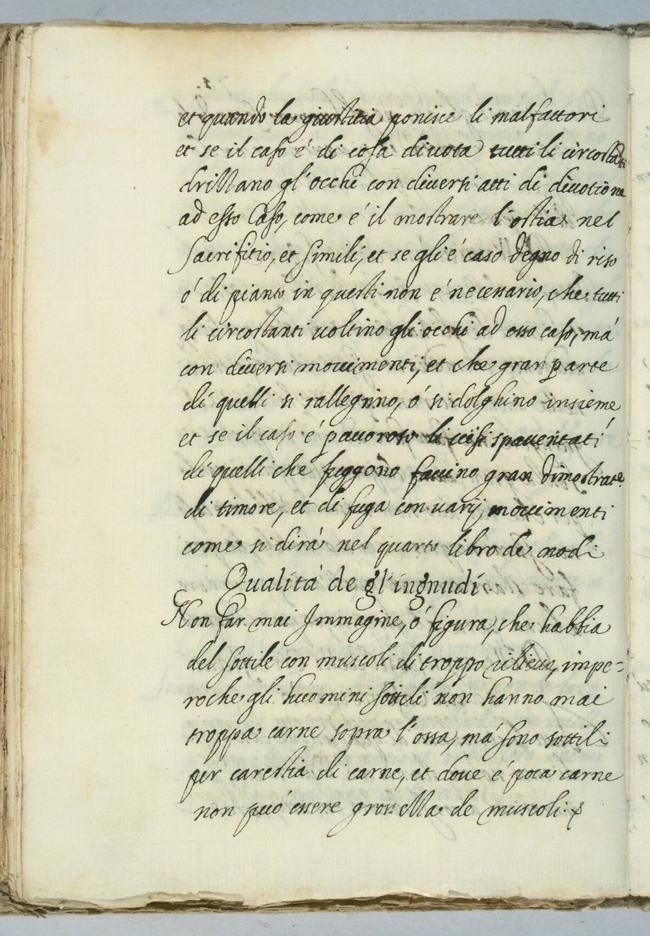 et quando la giustitia ponisce li malfattori
et se il caso é di cosa divota tutti li circosta̅ti
drizzano gl'occhi con diversi atti di divotione
ad esso Caso, come é il mostrare l'ostia nel
Sacrifitio, et simili, et se gli é caso degno di riso
ó di pianto in questi non é necessario, che tutti
li circostanti voltino gli occhi ad esso caso, má
con diversi movimenti, et che gran parte
di quelli si rallegrino, ó si dolghino insieme
et se il caso é pavoroso li visi spaventati
di quelli che fuggono faccino gran dimostrat.e
di timore, et di fuga con varij movimenti
come si dirá nel quarto libro de modi
Qualitá de gl'ingnudi
Non far mai Immagine, ó figura, che habbia
del sottile con muscoli di troppo rilievo, impe-
roche gli huomini sottili non hanno mai
troppa carne sopra l'ossa, má sono sottili
per carestia di carne, et dove é poca carne
non puó essere grossezza de muscoli.